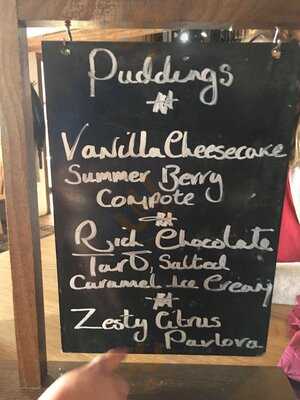 Puddings
Vanilla Cheesecake
Summer Berry
Compote
Rich Chocolate
Tart, Salted
Caramel Ice Cream
Zesty Citrus
Parlora